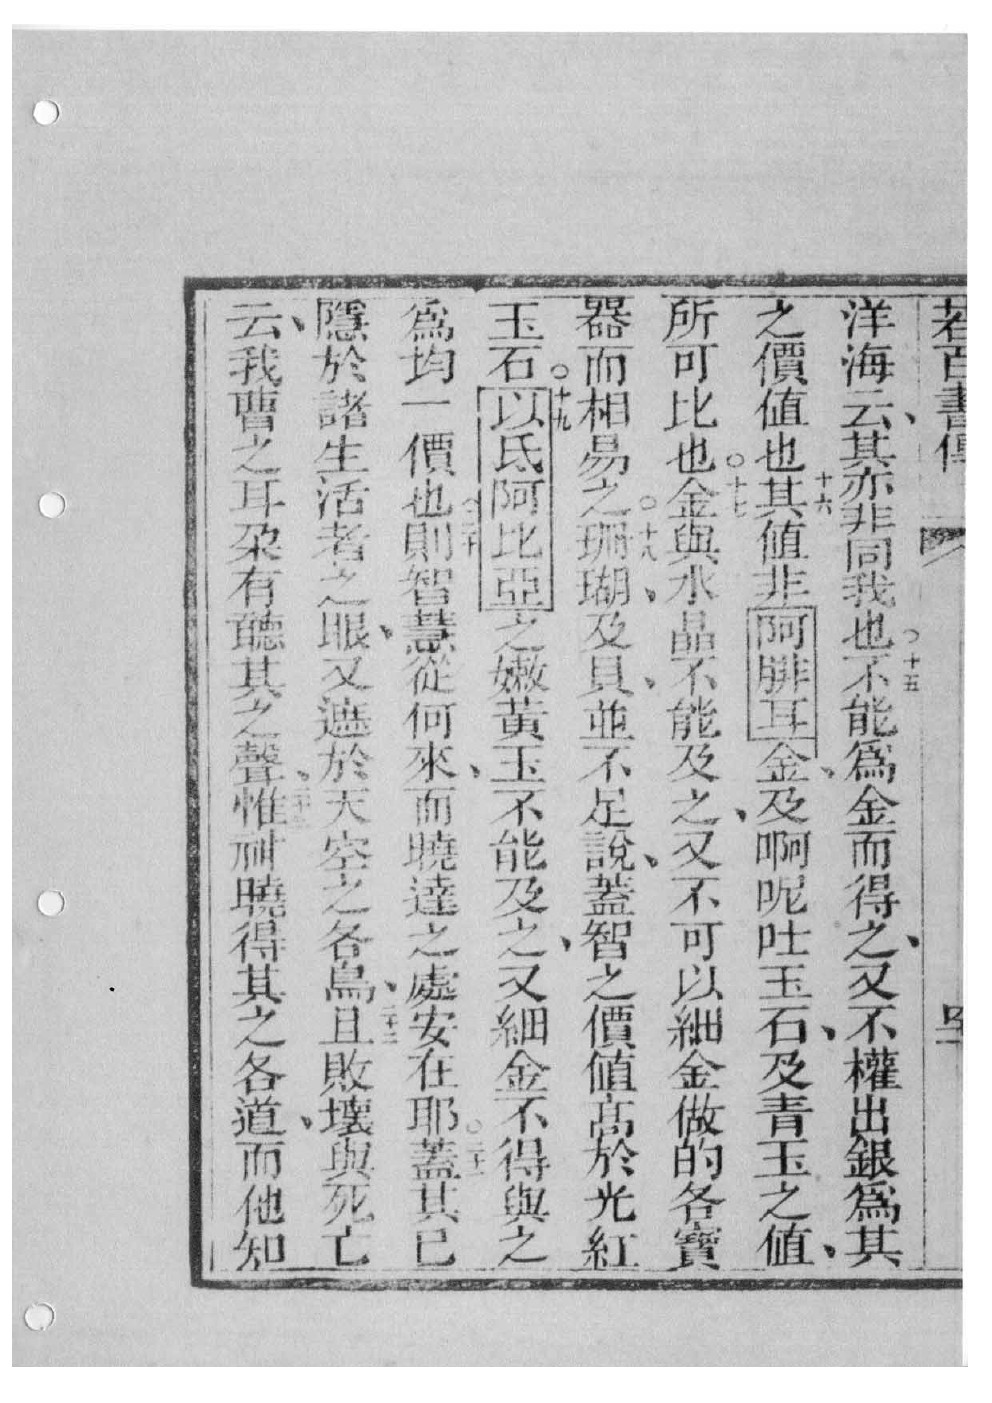 若百書傳
洋海云、其亦非同我也。十五不能爲金而得之、又不權出銀爲其
之價值也。十六其值非阿腓耳金、及啊呢吐玉石、及青玉之值、
所可比也。十七金與水晶不能及之、又不可以細金做的各寶
器而相易之。十八珊瑚、及貝、並不足說、蓋智之價值高於光紅
玉石。十九以氐阿比亞之嫩黃玉不能及之、又細金不得與之
爲均一價也。二十則智慧從何來、而曉達之處安在耶。二十一蓋其已
隱於諸生活者之眼、又遮於天空之各鳥、二十二且敗壞與死亡
云、我曹之耳朶有聽其之聲、二十三惟神曉得其之各道、而他知